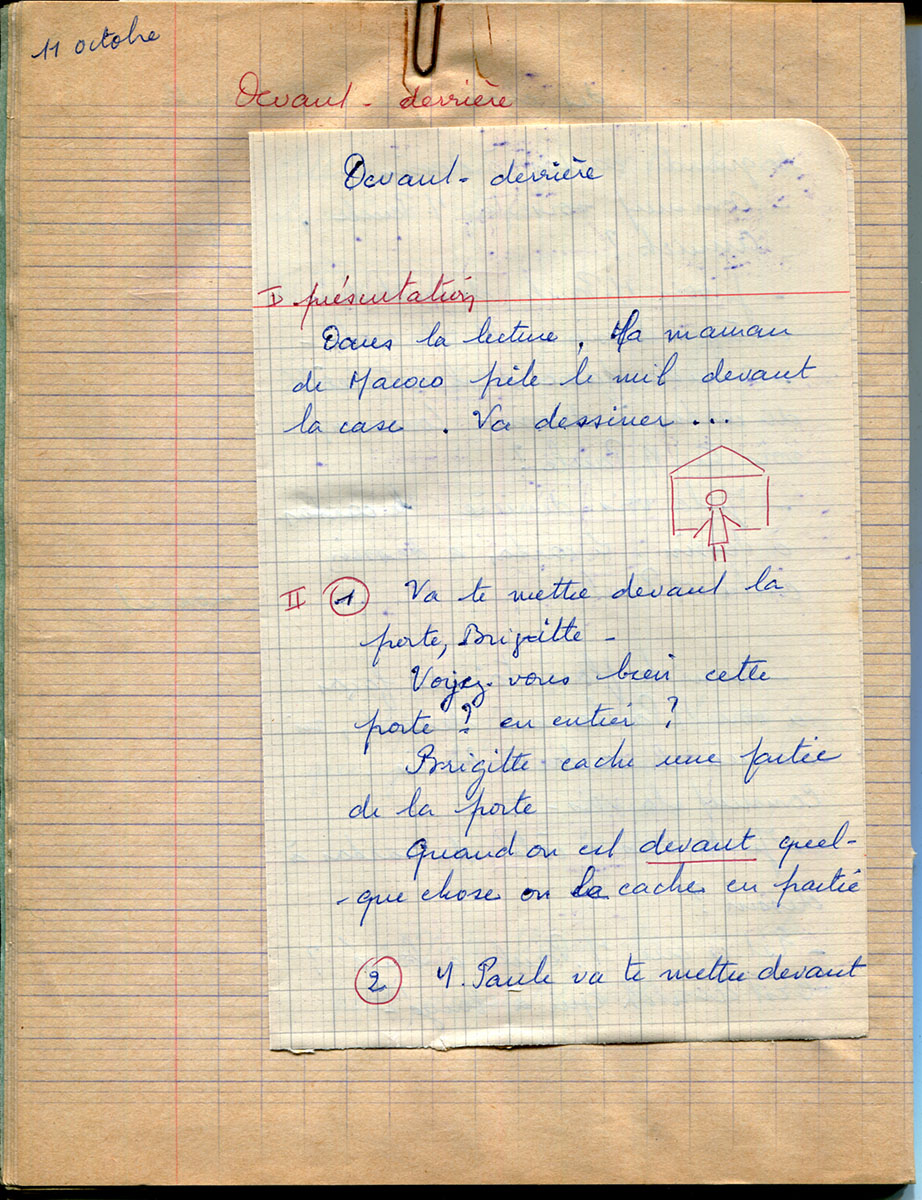 11 octobre
Devant - derrière
Devant - derrière
I présentation
Dans la lecture, la maman
de Macoco pile le mil devant
la case. Va dessiner ...
II 1 Va te mettre devant la
porte, Brigitte -
Voyez-vous bien cette
porte ? en entier ?
Brigitte cache une partie
de la porte
Quand on est devant quel-
-que chose on la cache en partie
2 M. Paule va te mettre devant